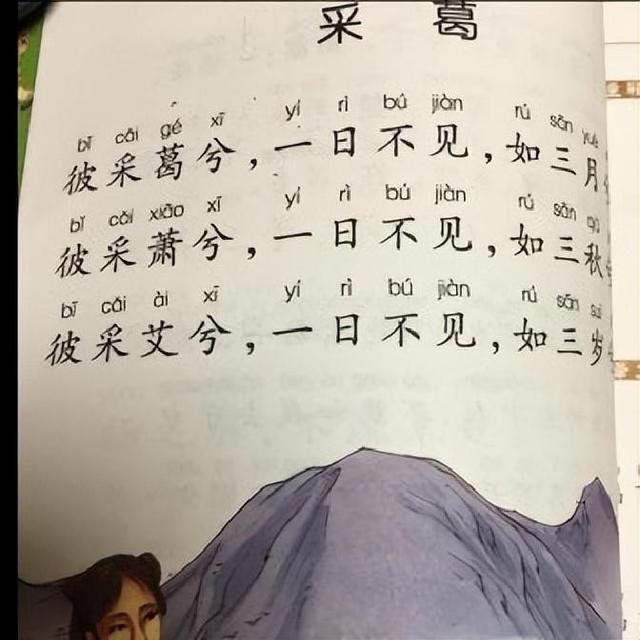 采葛
bǐ cǎi gé xī yí rì bú jiàn rú sān yuè
彼采葛兮，一日不见，如三月
bǐ cǎi xiāo xī yí rì bú jiàn rú sān qiū
彼采萧兮，一日不见，如三秋
bǐ cǎi ài xī yí rì bú jiàn rú sān suì
彼采艾兮，一日不见，如三岁